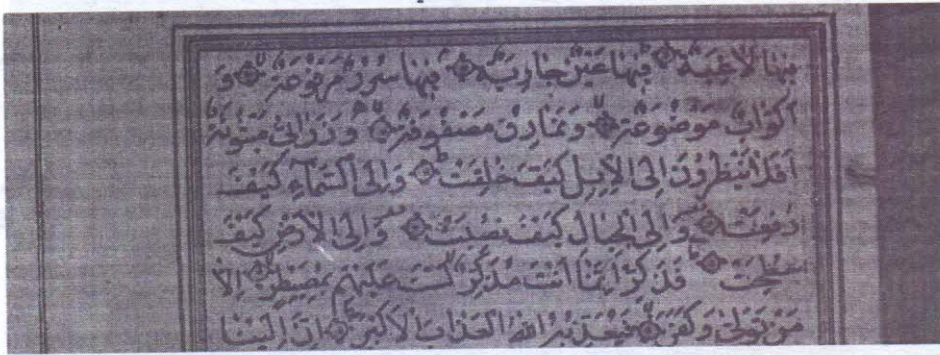 فِيهَا لَاغِيَةً ۝ فِيهَا عَيْنٌ جَارِيَةٌ ۝ فِيهَا سُرُرٌ مَرْفُوعَةٌ ۝ وَ
اَكْوَابٌ مَوْضُوعَةٌ ۝ وَنَمَارِقُ مَصْفُوفَةٌ ۝ وَزَرَابِيُّ مَبْثُوثَةٌ
اَفَلَا يَنْظُرُونَ اِلَى الْاِبِلِ كَيْفَ خُلِقَتْ ۝ وَاِلَى السَّمَاءِ كَيْفَ
رُفِعَتْ ۝ وَاِلَى الْجِبَالِ كَيْفَ نُصِبَتْ ۝ وَاِلَى الْاَرْضِ كَيْفَ
سُطِحَتْ ۝ فَذَكِّرْ اِنَّمَا اَنْتَ مُذَكِّرٌ لَسْتَ عَلَيْهِمْ بِمُصَيْطِرٍ ۝ اِلَّا
مَنْ تَوَلَّى وَكَفَرَ ۝ فَيُعَذِّبُهُ اللهُ الْعَذَابَ الْاَكْبَرَ ۝ اِنَّ اِلَيْنَا